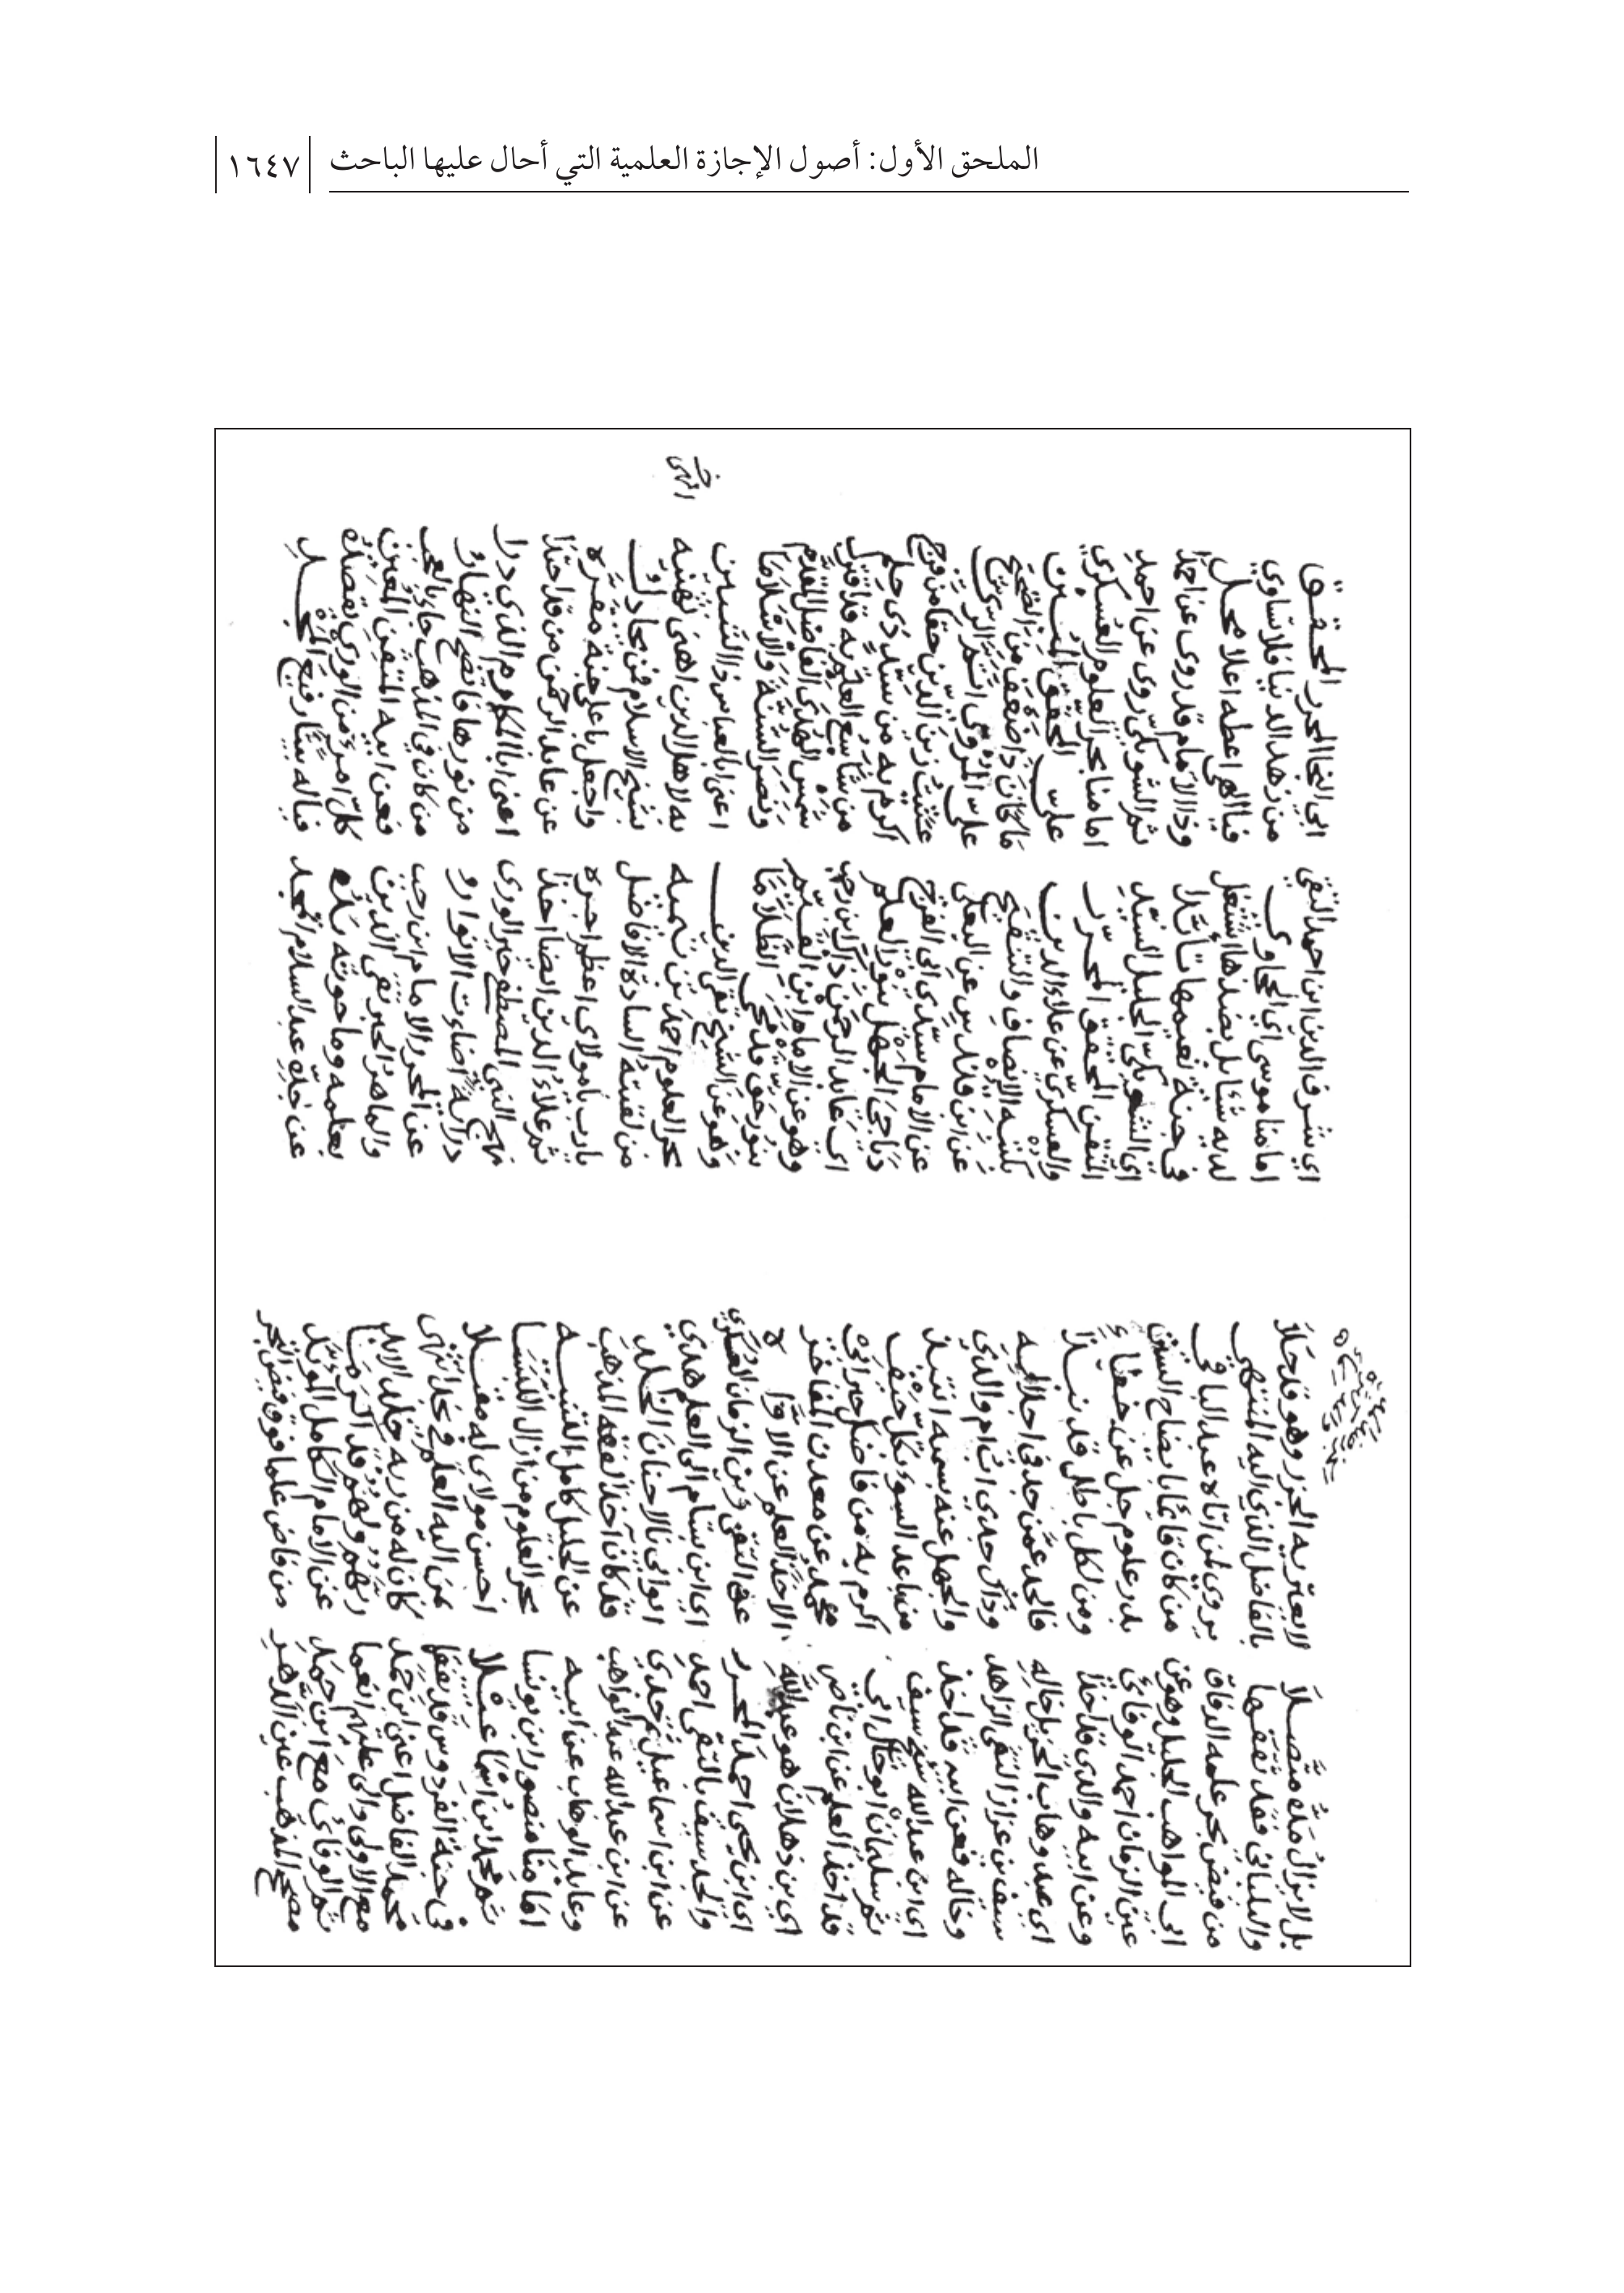 الملحق الأول: أصول الإجازة العلمية التي أحال عليها الباحث ١٦٤٧
بل لا يزال مَدُّهُ متَّصلاً لا يعتريه الجزر وهو قد حلا
والبلباني فقد تفقها بالفاضل الذي اليه المنتهى
من فيض بحر علمه الدفاق يروي لمن اتاه عبد الباقي
ابي المواهب الجليل وهو عن من كان قائما بايضاح السنن
عين الزمان احمد الوفائي بدر علوم جل عن خفاء
وعن ابيه والدي قد اخذا ومن لكل باطل قد نبذا
اي عبد وهاب خاله فالجد عمن جد في اجلاله
سيف بن عزاز التقي الزاهد وذاك جدي ام والدي
وخاله فعن ابيه قد اخذ والجهل عنه بسميه انتبذ
اي ابن عبد الله شيخ سيف من باعد السوء بكل حيف
ثم سليمان ابو ابي اكرم به من فاضل حبر
قد اخذ العلم عن ابن ناصر محمد عن معدن المفاخر
اي بن ذهلان هو عبد الله الاخذ العلم عن الاواه
اي ابن يحيى احمد المحرر عن التقي زين الزمان العسكري
والجد سيف بالتقي احمد اي ابن بسام الى العلم هدي
عن ابن اسماعيل ثم جدي الخلد
عن ابن عبد الله عبد الواهب قد كان آخذا لفقه المذهب
وعابد الوهاب عن ابيه عن الجليل كامل التنبيه
امامنا منصور ابن يونسا بحر العلوم من ازال اللبسا
ثم محمد ابن اسماعيلا احسن مولاي له مقيلا
في جنة الفردوس قد تفقها عمن اليه العلم في نجد انتهى
محمد الفاضل اعني ابن احمد كان له من ربه الابد
مع الاولى والى عليهم انعما ربهم ولهم قد اكرما
ثم الوفائي مع ابن احمد عن الامام الكامل المؤيد
مصحح المذهب عين الدهر من فاض علما فوق فيض البحر
اي شرف الدين ابن احمد التقي ابي النجا المحرر المحقق
امامنا موسى اي الحجاوي من زهد الدنيا فلا تساوي
لديه شيئا بل بضدها اشتغل فيا الهي اعطه اعلا محل
في جنة نعيمها تأبدا وذا الامام قد روى عن احمدا
اي الشويكي الجليل السيد ثم الشويكي روى عن احمد
المتقن المحقق المحرر امامنا بحر العلوم العسكري
والعسكري عن علاء الدين علي المحقق المبين
بكتبه الانصاف والتنقيح ما كان ذا ضعف من الصحيح
عن ابن قندس عن البعلي علي
عن الامام سيدي ابي الفرج زين الدين حقا من فرج
دياجي الجهل بنور العلم اكرم به من سيد ذي حلم
اي عابد الرحمن ذاك ابن رجب من شاسع العلم به قد اقترب
وهو عن الامام ابن القيم شمس الهدى الفاضل المقدم
بنور حق قد محى الظلاما ونصر السنة والاسلاما
وهو عن الشيخ تقي الدين اعني ابا العباس ذا التبيين
بحر العلوم احمد بن تيميه به لاهل الدين اهنى تهنيه
من لقبته السادة الافاضل بشيخ الاسلام فمن يجادل
يارب يا مولاي اعظم اجره واجعل باعلى جنة مقره
ثم علاء الدين ايضا اخذا عن عابد الرحمن من قد احتذا
نهج النبي المصطفى خير الورى اعني ابا المكارم الذي درا
دراية اضاءت الانوار و من نورها فاتضح النهار
عن المحرر الامام ابن رجب من كان في المذهب جاء بالعجب
والماهر الحبر تقي الدين فعن ابيه المتقن المعين
بعلمه وما حوته يده كل امرئ من الورى يقصده
عن جده عبد السلام الامجد فياله بيتا رفيع